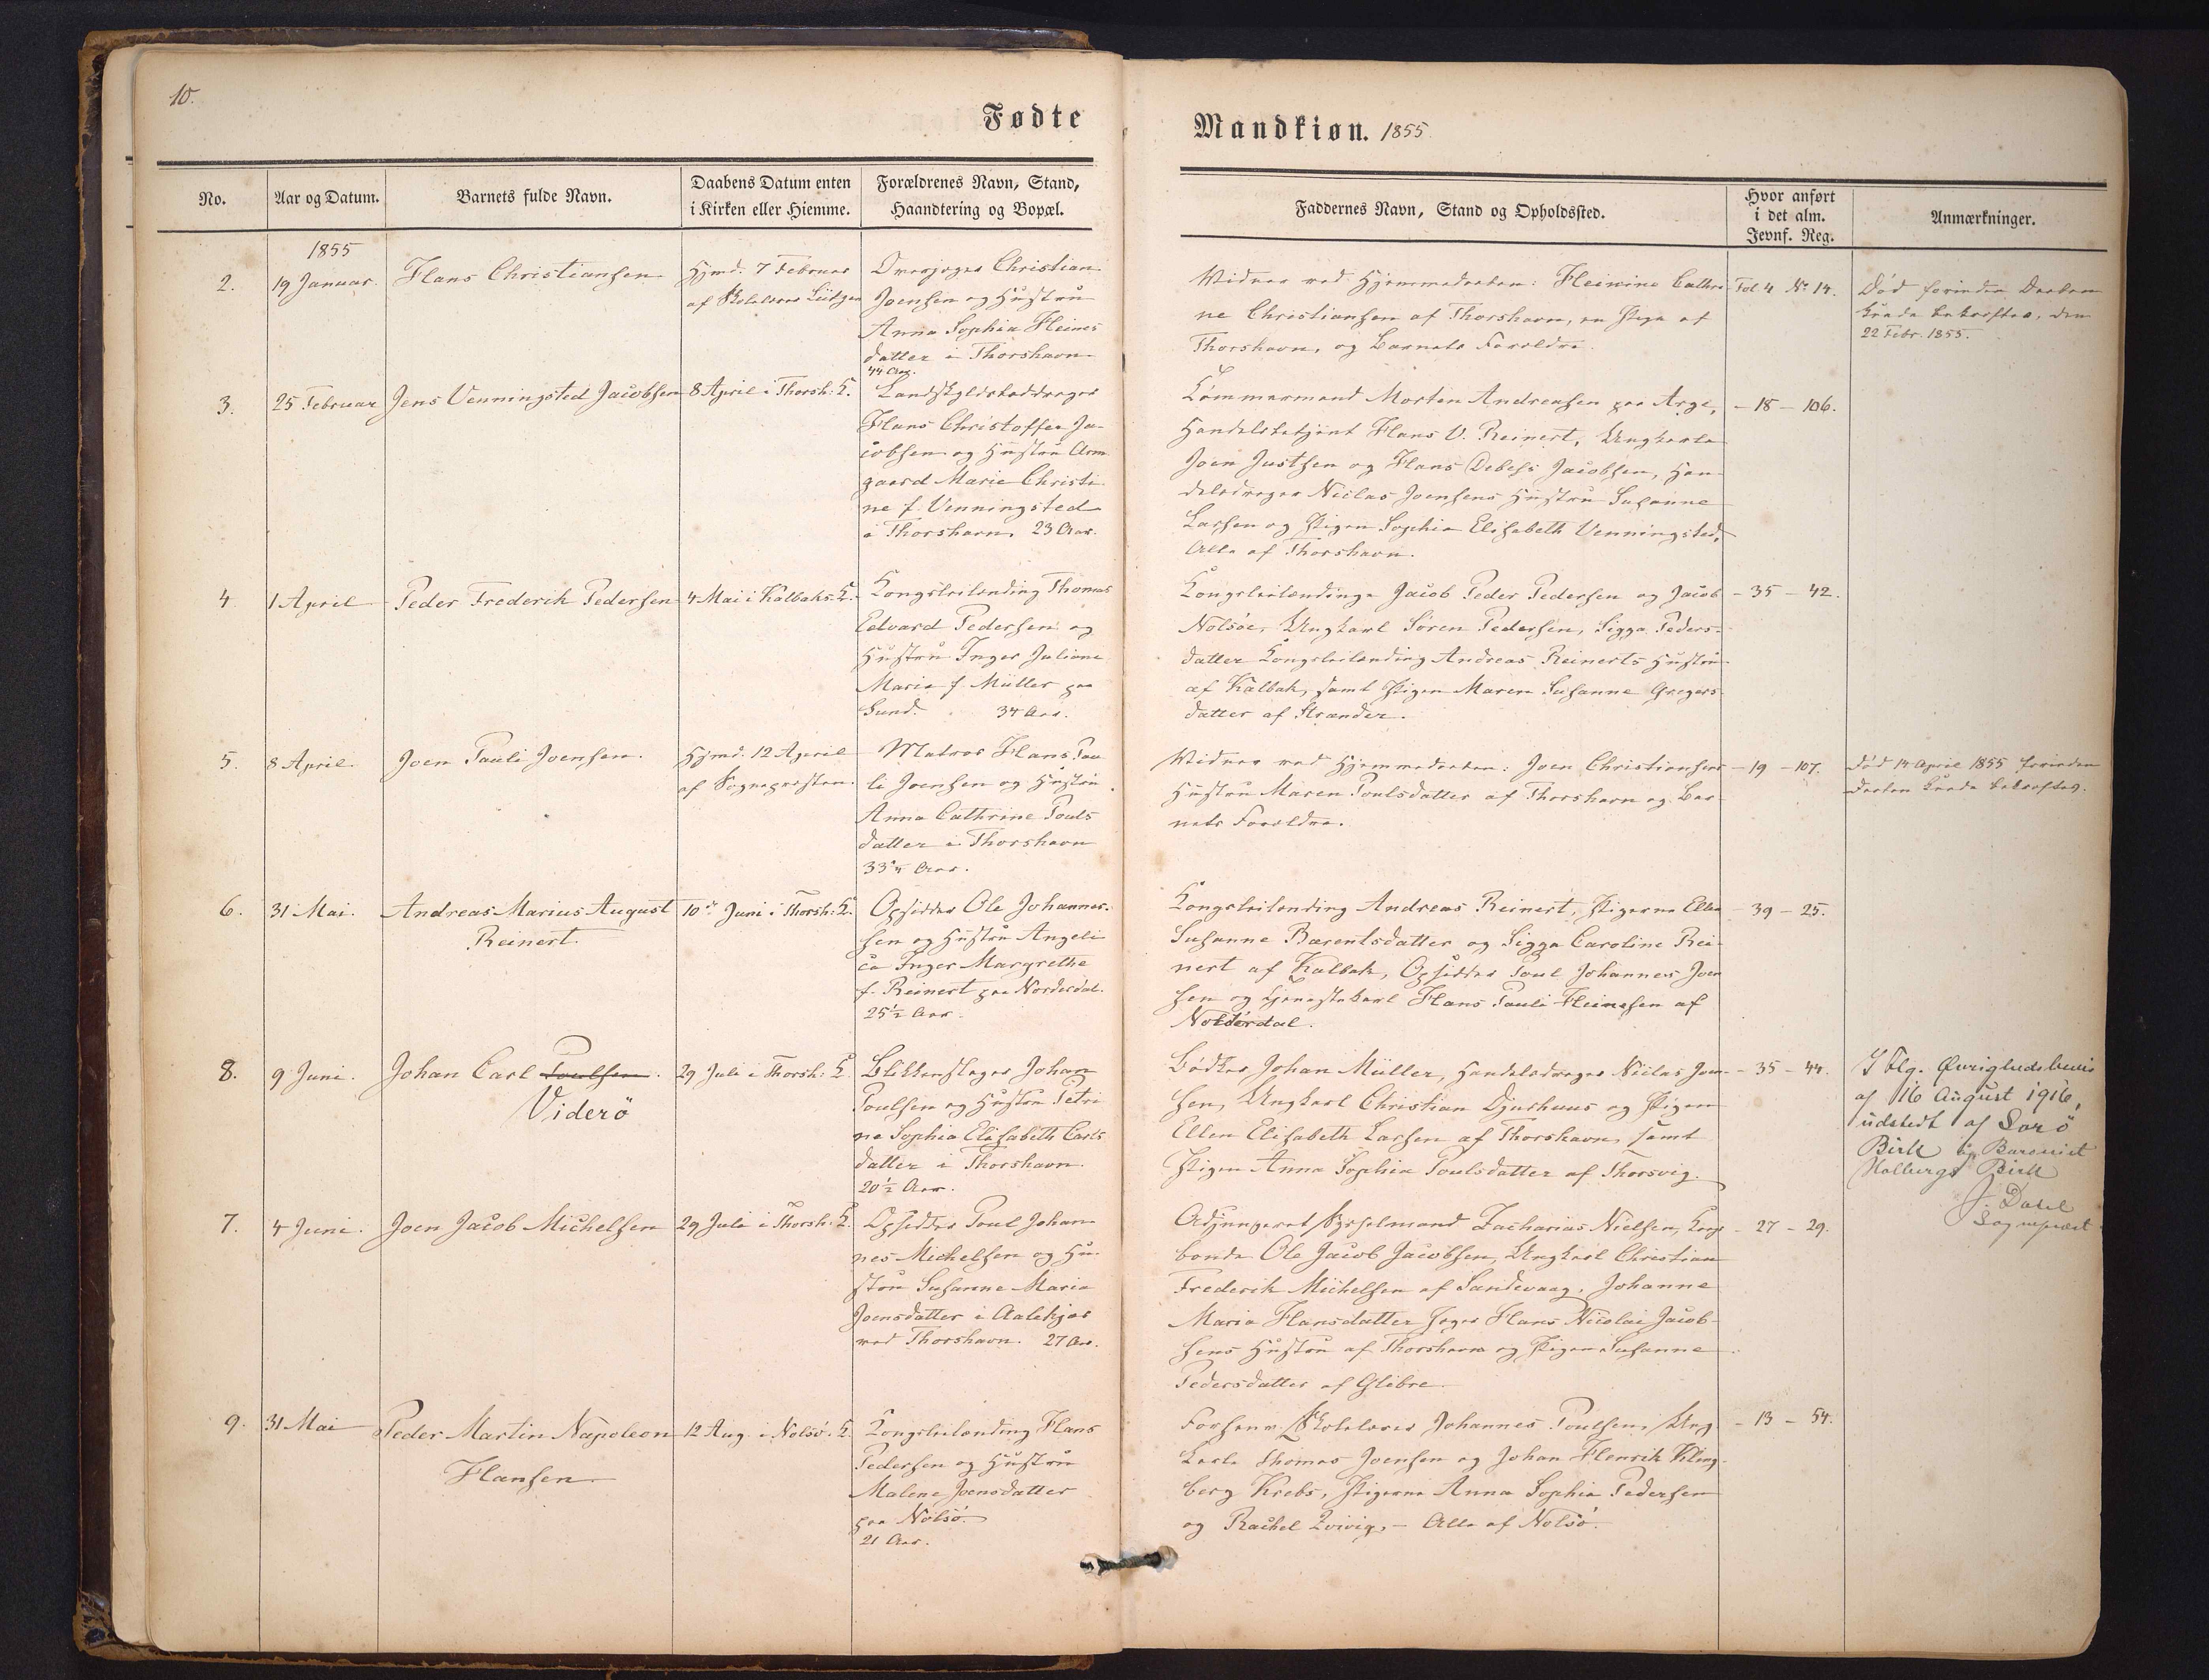 10.
Fødte
Mandkiøn. 1855
No.
Aar og Datum.
Barnets fulde Navn.
Daabens Datum enten
i Kirken eller Hiemme.
Forældrenes Navn, Stand,
Haandtering og Bopæl.
Faddernes Navn, Stand og Opholdssted.
Hvor anført
i det alm.
Jevnf. Reg.
Anmærkninger.
1855
2.
19 Januar.
Hans Christiansen
Hjmd. 7 Februar
af Skolelærer Lützen
Christian
Joensen og Hustru
Anna Sophia Heines
datter i Thorshavn
44 Aar.
Vidner ved Hjemmedaaben: Heinine Cathri
ne Christiansen af Thorshavn, en Pige af
Thorshavn, og Barnets Forældre.
Fol. 4 No 14.
Død forinden Daaben
kunde bekræftes, den
22 Febr. 1855.
3.
25 Februar
Jens Venningsted Jacobsen
8 April i Thorsh: K.
Hans Christoffer Ja-
cobsen og Hustru Arm
gaard Marie Christi-
ne f. Venningsted
i Thorshavn. 23 Aar.
Tømmermand Morten Andreasen paa Arge,
Handelsbetjent Hans V. Reinert, Ungkarle
Joen Justsen og Hans Debess Jacobsen, Han-
delsdreger Niclas Joensens Hustru Susanne
Larsen og Pigen Sophia Elisabeth Venningsted,
Alle af Thorshavn.
- 18 - 106.
4.
1 April
Peder Frederik Pedersen
4 Mai i Kalbaks K.
Kongsleilending Thomas
Edvard Pedersen og
Hustru Inger Juliane
Maria f. Müller paa
Sund. 34 Aar.
Kongsleilændinge Jacob Peder Pedersen og Jacob
Nolsøe, Ungkarl Søren Pedersen, Sigga Peders-
datter Kongsleilending Andreas Reinerts Hustru
af Kalbak, samt Pigen Maren Susanne Gregers-
datter af Strænder.
- 35 - 42.
5.
8 April.
Joen Pauli Joensen.
Hjmd. 12 April
af Sognepræsten.
Matros Hans Pau
li Joensen og Hustru
Anna Cathrine Pouls
datter i Thorshavn
Aar.
Vidner ved Hjemmedaaben: Joen Christiansens
Hustru Maren Poulsdatter af Thorshavn og Bar
nets Forældre.
- 19 - 107.
Død 14 April 1855 forinden
Daaben kunde bekræftes.
6.
31 Mai.
Andreas Marius August
Reinert.
10de Juni i Thorsh: K.
Opsidder Ole Johannes-
sen og Hustru Angeli
ca Inger Margrethe
f. Reinert paa Norderdal.
25½ Aar.
Kongsleilending Andreas Reinert, Pigerne Ellen
Susanne Barentsdatter og Sigga Caroline Rei-
nert af Kalbak, Opsidder Poul Johannes Joen
sen og Tjenestekarl Hans Pauli Heinesen af
Norderdal.
- 39 - 25.
8.
9 Juni.
Johan Carl Poulsen.
Viderö
29 Juli i Thorsh: K
Blikkenslager Johan
Poulsen og Hustru Petri
ne Sophia Elisabeth Carls
datter i Thorshavn.
20½ Aar.
Bødker Johan Müller, Handelsdreger Niclas Joen-
sen, Ungkarl Christian Djurhuus og Pigen
Ellen Elisabeth Larsen af Thorshavn, samt
Pigen Anna Sophia Poulsdatter af Thorsvig.
- 35 - 44.
I Flg. Øvrighedsbevis
af 16 August 1916,
udstedt af Sorö
Birk og Baroniet
Holbergs Birk
J. Dahl
Sognepræst
7.
4 Juni.
Joen Jacob Michelsen
29 Juli i Thorsh: K.
Opsidder Poul Johan-
nes Michelsen og Hu-
stru Susanne Maria
Joensdatter i Aalekjer
ved Thorshavn. 27 Aar.
Adjungeret Sysselmand Zacharias Nielsen, Kongs
bonde Ole Jacob Jacobsen, Ungkarl Christian
Frederik Michelsen af Sandevaag, Johanne
Maria Hansdatter Jeger Hans Nicolai Jacob-
sens Hustru af Thorshavn og Pigen Susanne
Pedersdatter af Glibre.
- 27 - 29.
9.
31 Mai
Peder Martin Napoleon
Hansen
12 Aug. i Nolsö. K.
Kongsleilending Hans
Pedersen og Hustru
Malene Joensdatter
paa Nolsö.
21 Aar.
Forhenv. Skolelærer Johannes Poulsen, Ung-
karle Thomas Joensen og Johan Henrik Kling-
berg Krebs, Pigerne Anna Sophia Pedersen
og Rachel - Alle af Nolsö.
- 13 - 54.